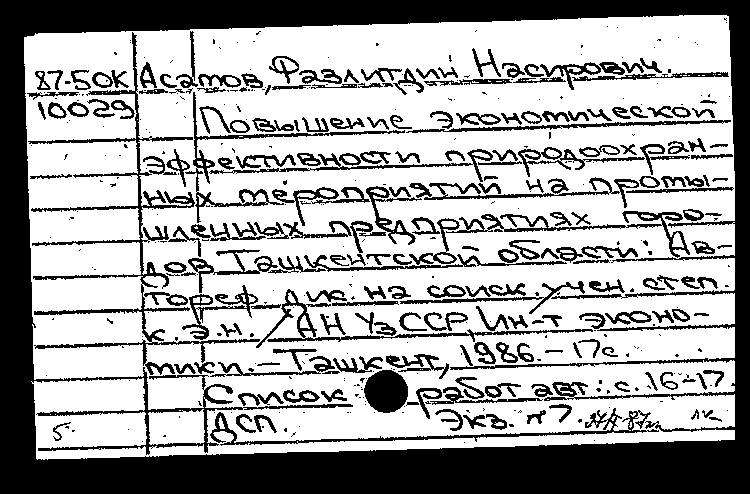 87-50К Асатов, Фазлитдин Насирович.
10029 Повышение экономической
эффективности природоохран-
ных мероприятий на промы-
шленных предприятиях горо-
дов Ташкентской области: Ав-
тореф. дис. на соиск. учен. степ.
к. э. н. / АН УзССР, Ин-т эконо-
мики. - Ташкент, 1986. - 17с.
Список работ авт.: с. 16-17.
5. ДСП. Экз. n 7.